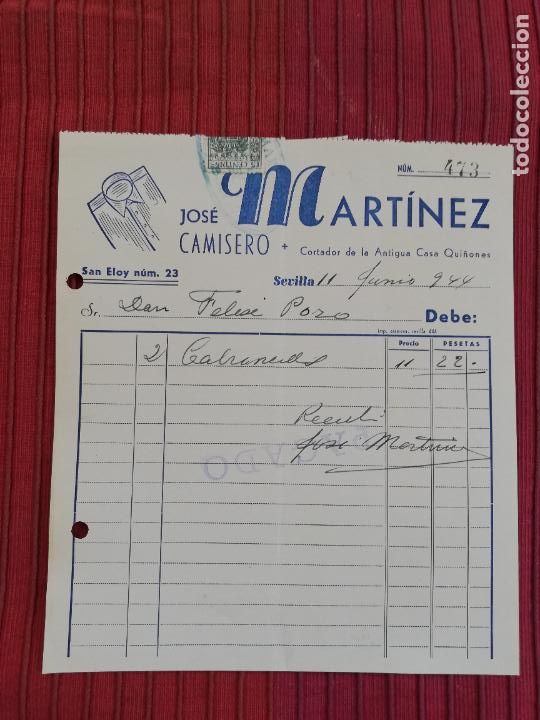 NÚM. 473
JOSÉ MARTÍNEZ
CAMISERO + Cortador de la Antigua Casa Quiñones
San Eloy núm. 23
Sevilla 11 Junio 944
Sr. Don Felise Pozo Debe:
Precio PESETAS
2 Calzoncillos 11 22-
Recibí
José Martínez
PAGADO
todocoleccion.net